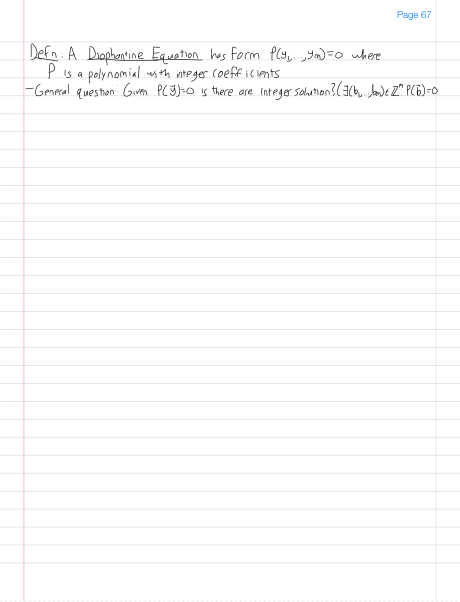 Page 67
Defn: A Diophantine Equation has form P(y₁,...,yₘ)=0 where
P is a polynomial with integer coefficients
-General question: Given P(y⃗)=0 is there are integer solution? (∃(b₁,...,bₘ)∈ℤᵐ P(b⃗)=0